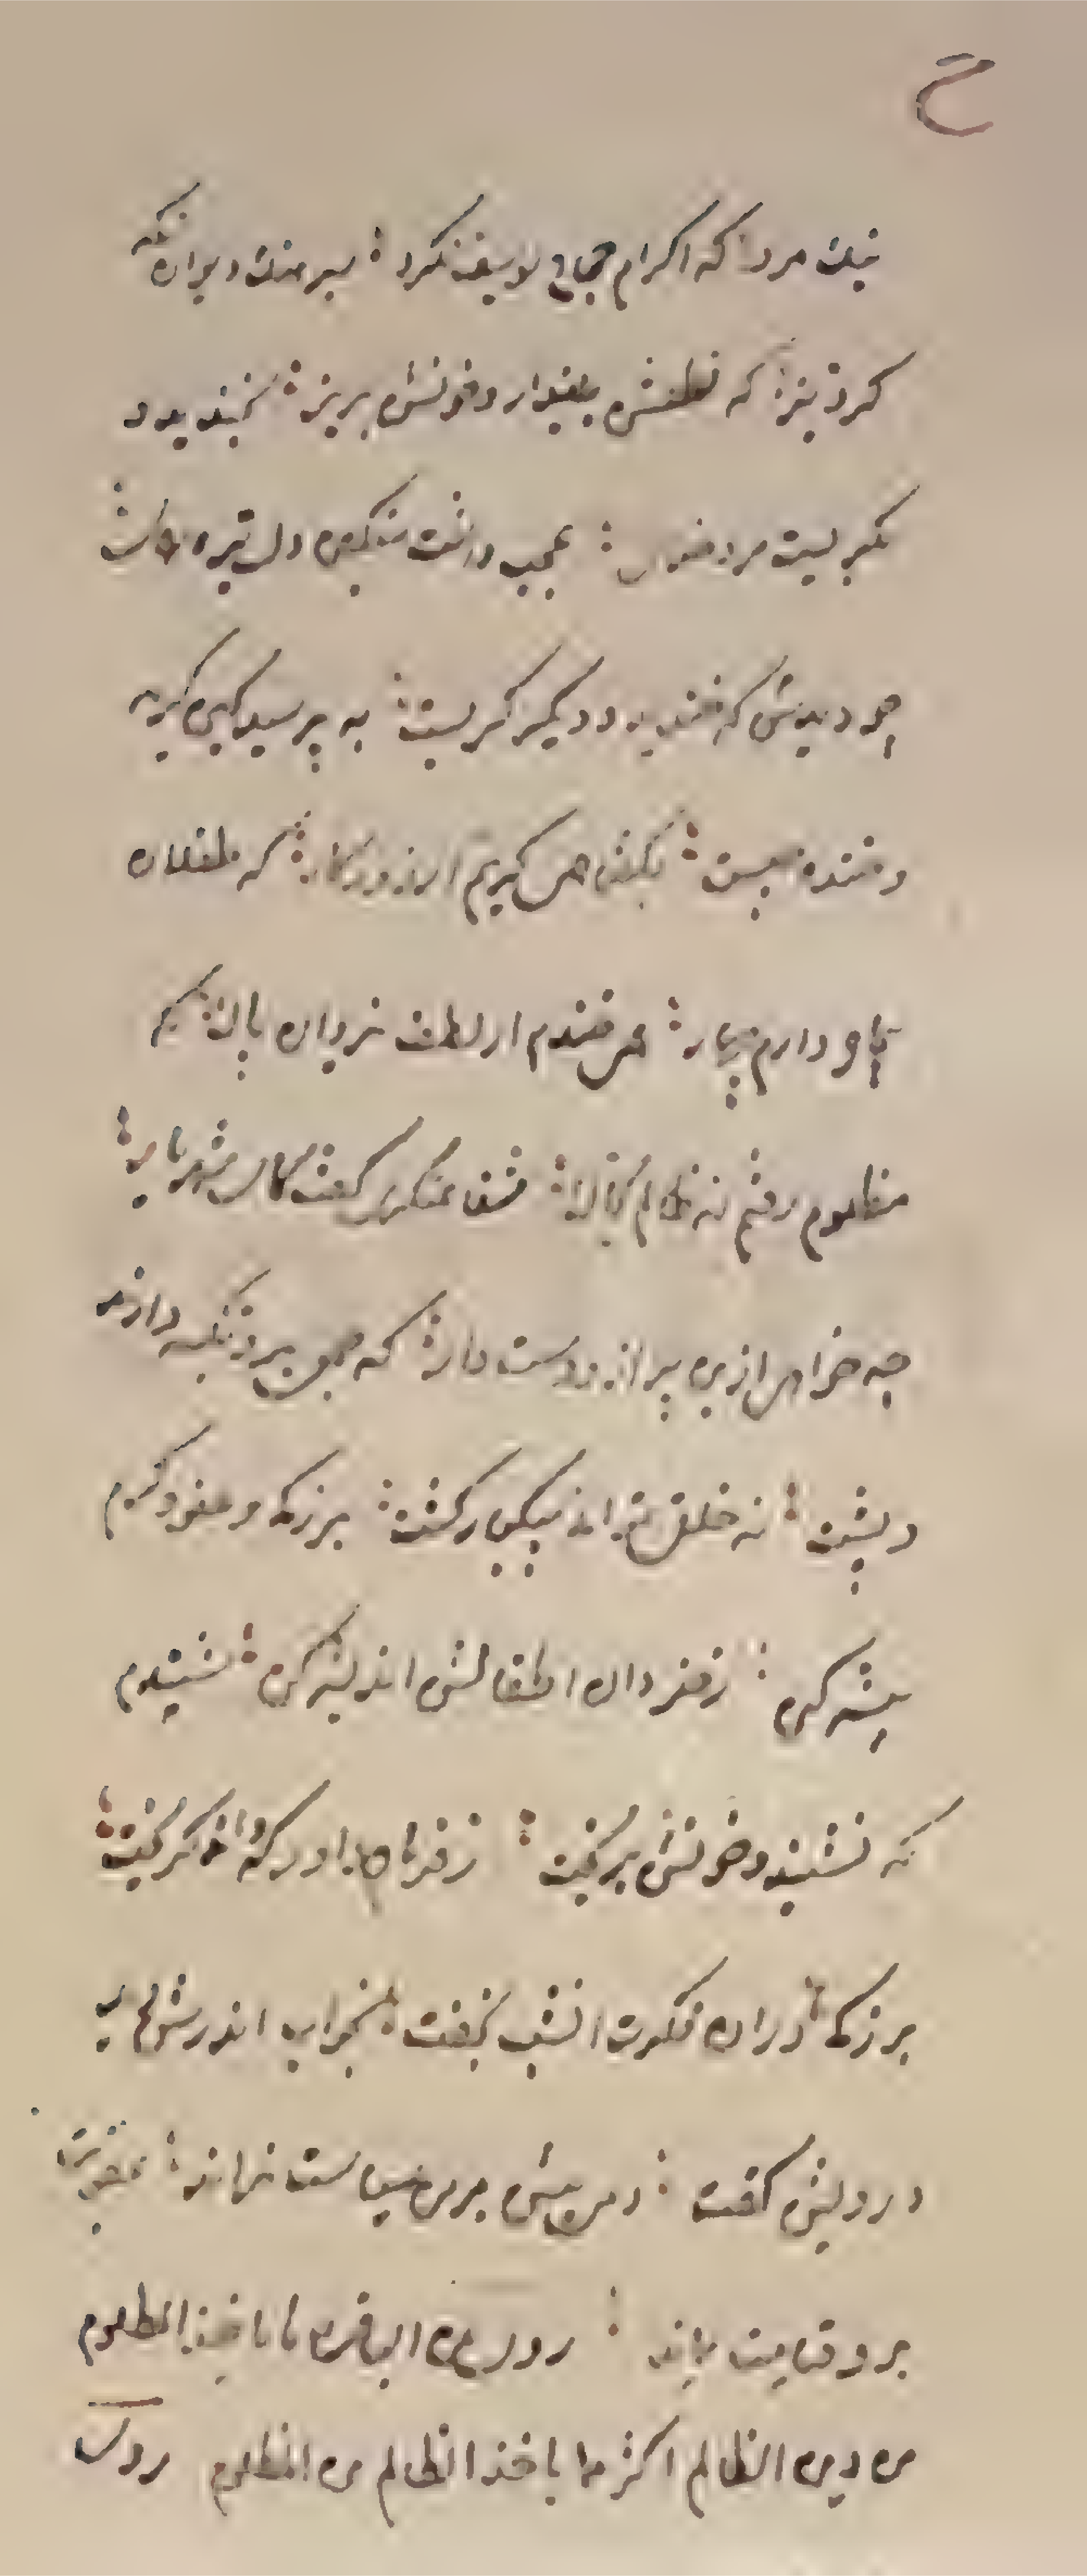 نیک مردا که اکرام حجاج یوسف نکرد بسرهنک دیوان نکه
کرد تیز که نطعش بینداز و خونش بریز بخندید و
بکریست مرد خدای عجب داشت سنکین دل تیره رای
چو دیدش که خندید و دیکر کریست به پرسید کین کریه
و خنده چیست بکفتا همی کریم از روزکار که طفلان
بیچاره دارم چهار همی خندم از لطف یزدان پاک که
مظلوم رفتم نه ظالم بخاک کفت ای شهریار
چه خواهی ازین پیر از دست دار که خلقی برو تکیه دارند
و پشت نه خلقی توان بیکبار کشت بزرکی و عفو و کرم
پیشه کن ز خردان اطفالش اندیشه کن شنیدم
که نشنید و خونش بریخت ز فرمان داور که داند کریخت
بزرکی دران فکرت انشب بخفت بخواب اندرش دید
درویش کفت دمی بیش بر من سیاست نراند عقوبت
برو تا قیامت بماند روی عن الباقر ما یاخذ المظلوم
من دین الظالم اکثر مما یاخذ الظالم من المظلوم روی